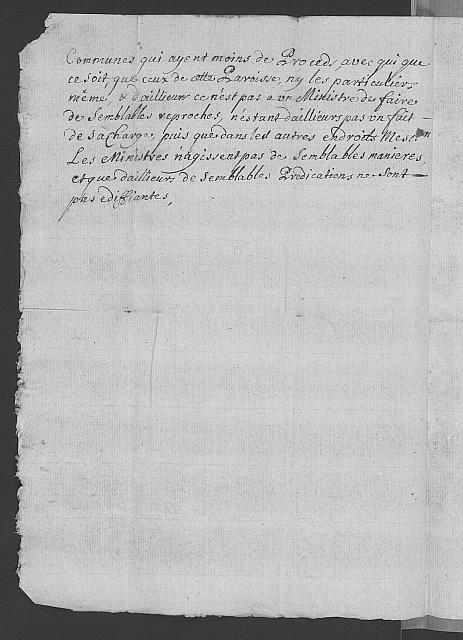 Communes qui ayent moins de Proceds, avec qui que
ce soit que ceux de cette Paroisse, ny les particulier
même, & dailleur ce n'est pas a un Ministre de faire
de Semblables reproches, n'estant dailleurs pas un fait
de Sa charge, puis que dans les autres Endroits Mess.rs
Les Ministres nagissent pas de Semblables manieres,
et que dailleur, de Semblables Predications ne Sont
pas ediffiantes,